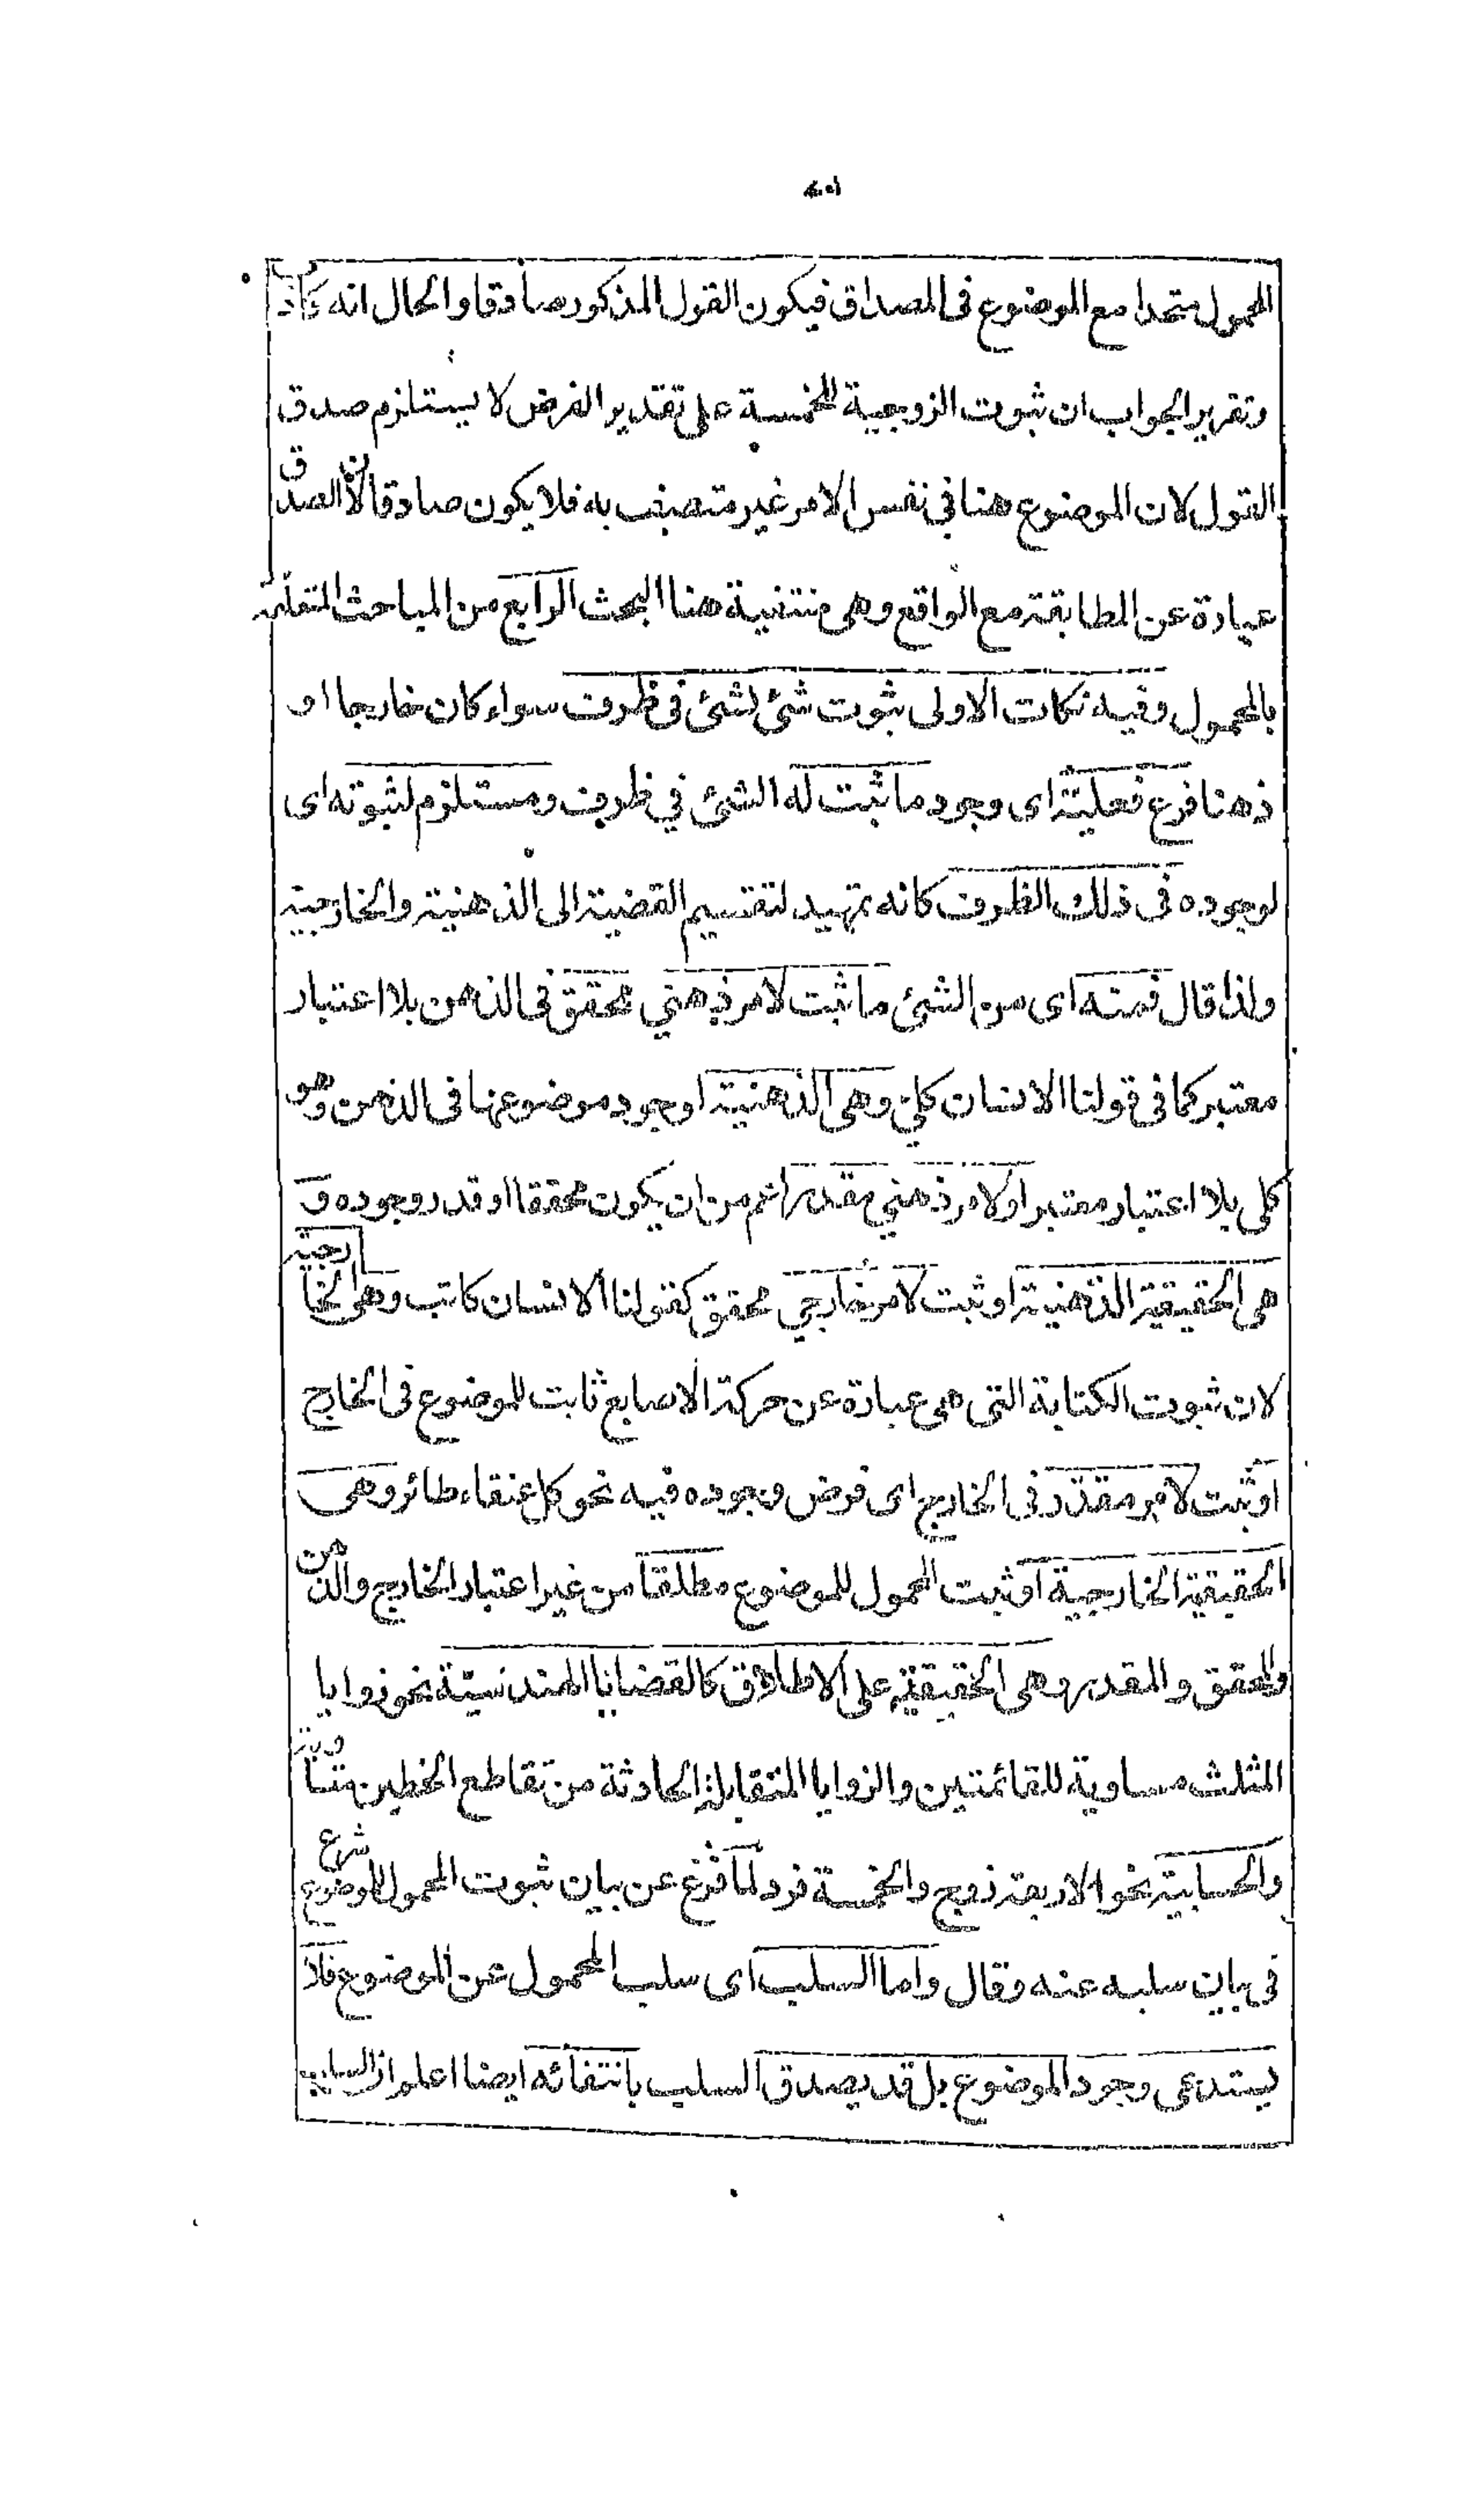 المحمول متحدا مع الموضوع فى المصداق فيكون القول المذكور صادقا والحال انه كاذب
وتقرير الجواب ان ثبوت الزوجية للخمسة على تقدير الفرض لا يستلزم صدق
القول لان الموضوع هنا فى نفس الامر غير متصف به فلا يكون صادقا لان الصدق
عبارة عن المطابقة مع الواقع وهى منتفية هنا البحث الرابع من المباحث المتعلقة
بالمحمول وفيه نكات الاولى ثبوت شئ لشئ فى ظرف سواء كان خارجا او
ذهنا فرع فعلية اى وجود ما ثبت له الشئ في ظرف ومستلزم لثبوته اى
لوجوده فى ذلك الظرف كانه تمهيد لتقسيم القضية الى الذهنية والخارجية
ولذا قال فمنه اى من الشئ ما ثبت لامر ذهني محقق فى الذهن بلا اعتبار
معتبر كما فى قولنا الانسان كلي وهى الذهنية لوجود موضوعها فى الذهن وهو
كلى بلا اعتبار معتبر او لامر ذهني مقدر اعم من ان يكون محققا او قدر وجوده و
هى الحقيقية الذهنية او ثبت لامر خارجي محقق كقولنا الانسان كاتب وهى الخارجية
لان ثبوت الكتابة التى هى عبارة عن حركة الاصابع ثابت للموضوع فى الخارج
او ثبت لامر مقدر فى الخارج اى فرض وجوده فيه نحو كل عنقاء طائر وهى
الحقيقية الخارجية او ثبت المحمول للموضوع مطلقا من غير اعتبار الخارج والذهن
والمحقق والمقدر وهى الحقيقية على الاطلاق كالقضايا الهندسية نحو زوايا
المثلث مساوية للقائمتين والزوايا المتقابلة الحادثة من تقاطع الخطين متساوية
والحسابية نحو الاربعة زوج والخمسة فرد لما فرغ عن بيان ثبوت المحمول للموضوع شرع
فى بيان سلبه عنه وقال واما السلب اى سلب المحمول عن الموضوع فلا
يستدعى وجود الموضوع بل قد يصدق السلب بانتفائه ايضا اعلم ان السلب